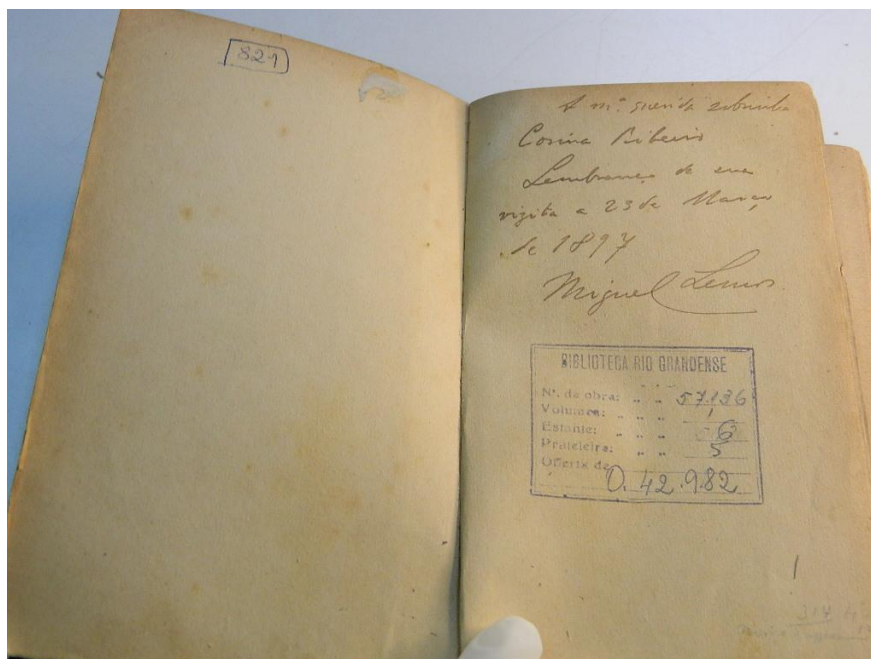 821
A m.ª querida sobrinha
Corina Ribeiro
Lembrança de sua
vizita a 23 de Março
de 1897
Miguel Lemos
BIBLIOTECA RIO GRANDENSE
Nº. da obra: 57.136
Volumes: 1
Estante: 6
Prateleira: 5
Oferta de
D. 42.982